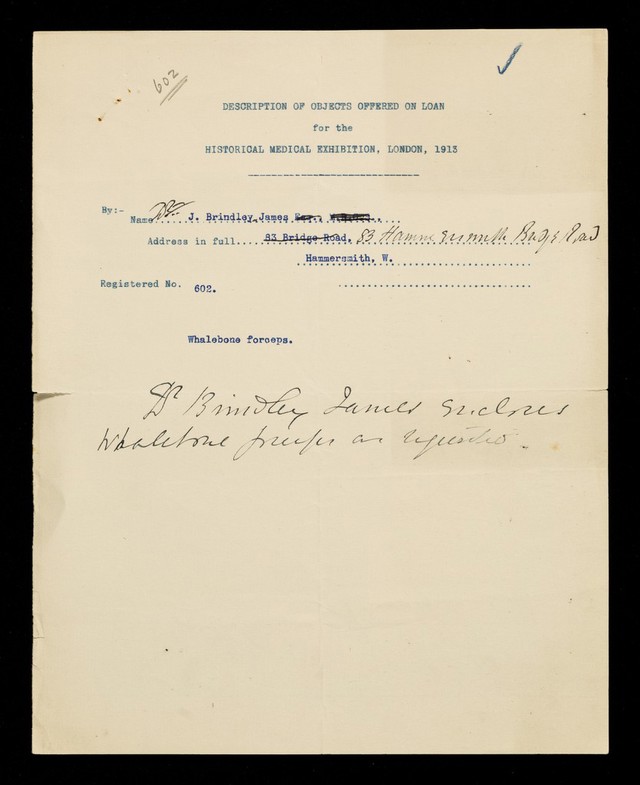 602
DESCRIPTION OF OBJECTS OFFERED ON LOAN
for the
HISTORICAL MEDICAL EXHIBITION, LONDON, 1913
By:-
Name Dr. J. Brindley James
Address in full 83 Bridge Road, 83 Hammersmith Bridge Road
Hammersmith, W.
Registered No. 602.
Whalebone forceps.
Dr Brindley James encloses
Whalebone forceps as requested.